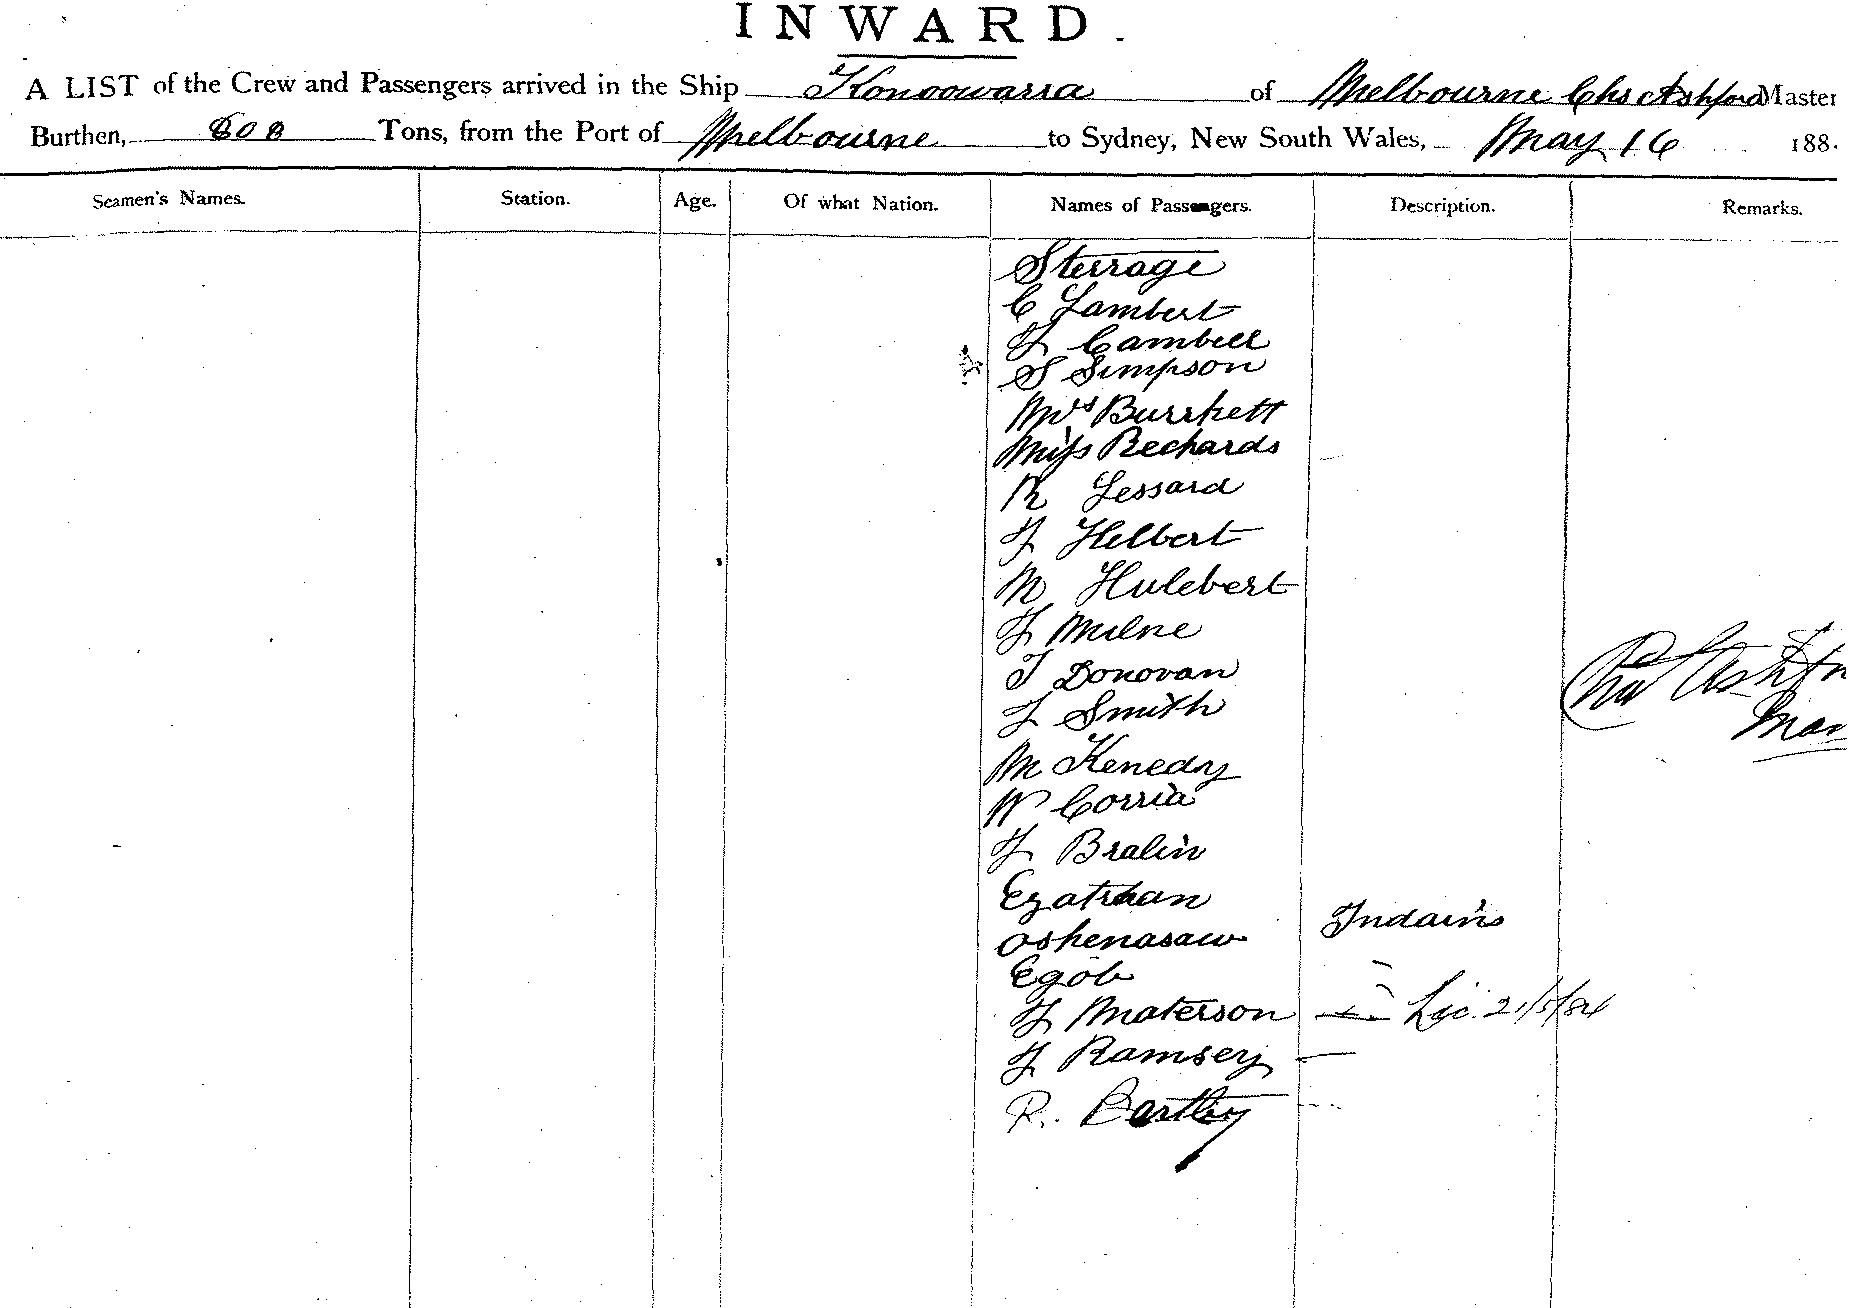 INWARD.
A LIST of the Crew and Passengers arrived in the Ship Konoowarra of Melbourne Chs Ashford Master
Burthen, 808 Tons, from the Port of Melbourne to Sydney, New South Wales, May 16 188
Seamen's Names. Station. Age. Of what Nation. Names of Passengers. Description. Remarks.
Sterrage
C Lambert
J Cambell
S Simpson
Mrs Burrkett
Miss Rechards
R Lessard
J Helbert
M Hulebert
J Milne
T Donovan
J Smith
Chs Ashford
M Kenedy
W Corria
J Bralin
Ezatkhan
Oshenasaw Indains
Egob
J Materson Lic. 21/5/84
J Ramsey
R. Bartley